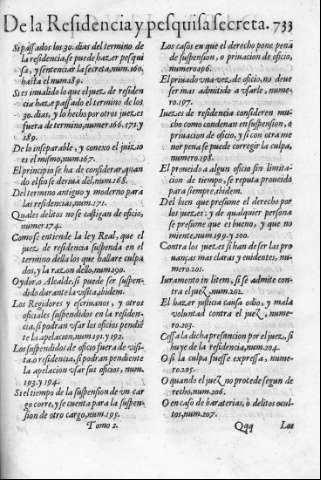 De la Residencia y pesquisa secreta. 733
Si passados los 30. dias del termino de
la residencia se puede hazer pesqui
sa, y sentenciar la secreta, num.166.
hasta el num.189.
Si es inualido lo que el juez de residen
cia haze passado el termino de los
30. dias, y lo hecho por otros juezes
fuera de termino, numer.166.171. y
189.
De lo inseparable, y conexo el juizio
es el mismo, num.167.
El principio se ha de considerar, quan
do el fin se deriua del, num.168.
Del termino antiguo y moderno para
las residencias, num.171.
Quales delitos no se castigan de oficio,
numer.174.
Como se entiende la ley Real, que el
juez de residencia suspenda en el
termino della los que hallare culpa
dos, y la razon dello, num.190.
Oydor, o Alcalde si puede ser suspen-
dido durante la visita, ibidem.
Los Regidores y escriuanos, y otros
oficiales suspendidos en la residen-
cia, si podran vsar los oficios pendiẽ
te la apelacion, num.191. y 192.
Los suspendidos de oficio fuera de visi-
ta, o residencia, si podran pendiente
la apelacion vsar sus oficios, num.
193. y 194.
Si el tiempo de la suspension de vn car
go corre, y se cuenta para la suspen-
sion de otro cargo, num.195.
Los casos en que el derecho pone pena
de suspension, o priuacion de oficio,
numero.196.
El priuado vna vez, de oficio, no deue
ser mas admitido a vsarle, nume-
ro.197.
Iuezes de residencia consideren mu-
cho como condenan en suspension, o
priuacion de oficio, y si con otra me
nor pena se puede corregir la culpa,
numero.198.
El proueido a algun oficio sin limita-
cion de tiempo, se reputa proueido
para siempre, ibidem.
Del bien que presume el derecho por
los juezes: y de qualquier persona
se presume que es bueno, y que no
miente, num.199. y 200.
Contra los juezes si han de ser las pro-
uanças mas claras y euidentes, nu-
mero.201.
Iuramento in litem, si se admite con-
tra el juez, num.202.
El hazer justicia causa odio, y mala
voluntad contra el juez, nume-
ro.203.
Cessa la dicha presuncion por el juez, si
huye de la residencia, num.204.
O si la culpa fuesse expressa, nume-
ro.205.
O quando el juez no procede segun de
recho, num.206.
O en caso de baraterias, o delitos ocul-
tos, num.207.
Tomo 2. Qqq Los